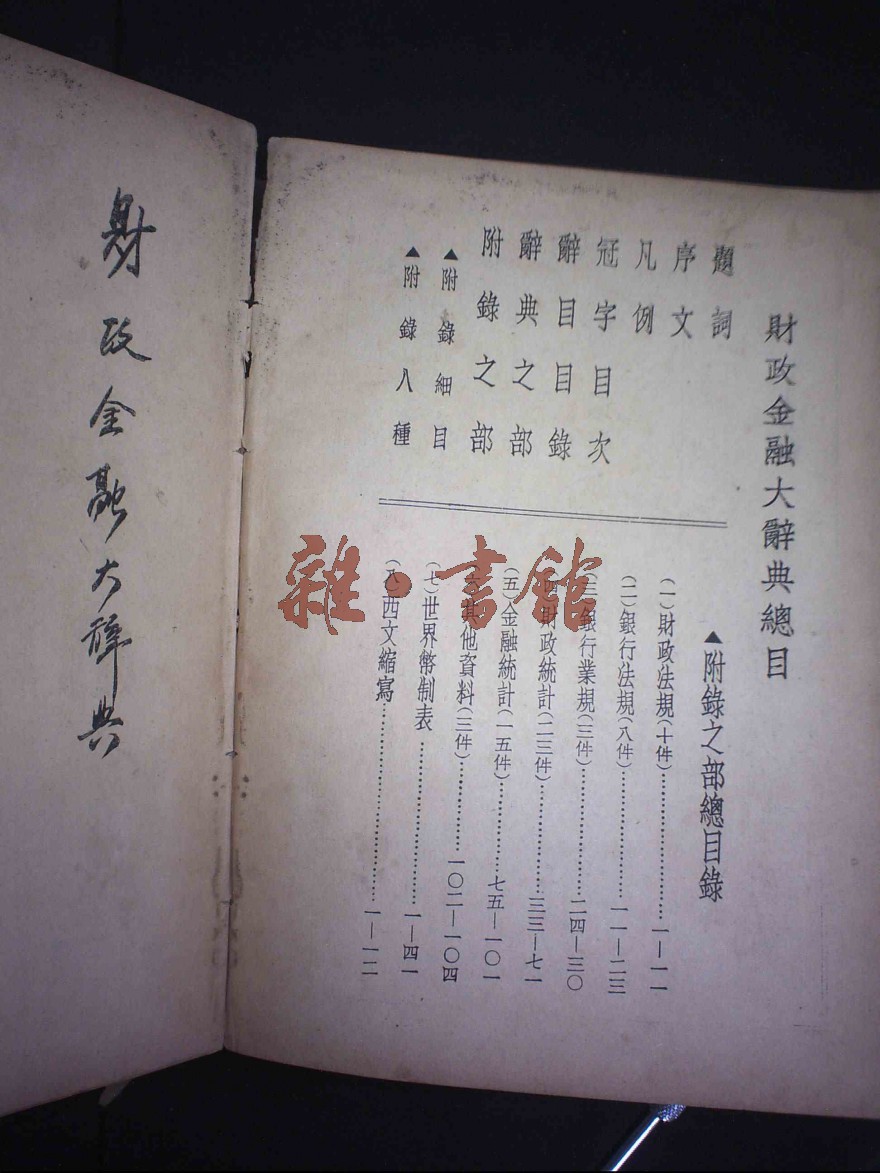 財政金融大辭典總目
題詞
序文
凡例
冠字目次
辭目目錄
辭典之部
附錄之部
▲附錄細目
▲附錄八種
▲附錄之部總目錄
(一)財政法規(十件)……………………一—一一
(二)銀行法規(八件)……………………一一—二三
(三)銀行業規(三件)……………………二四—三〇
(四)財政統計(二三件)……………………三三—七一
(五)金融統計(一五件)……………………七五—一〇一
(六)其他資料(三件)……………………一〇二—一〇四
(七)世界幣制表……………………一—四一
(八)西文縮寫……………………一—一二
財政金融大辭典
雜·書館